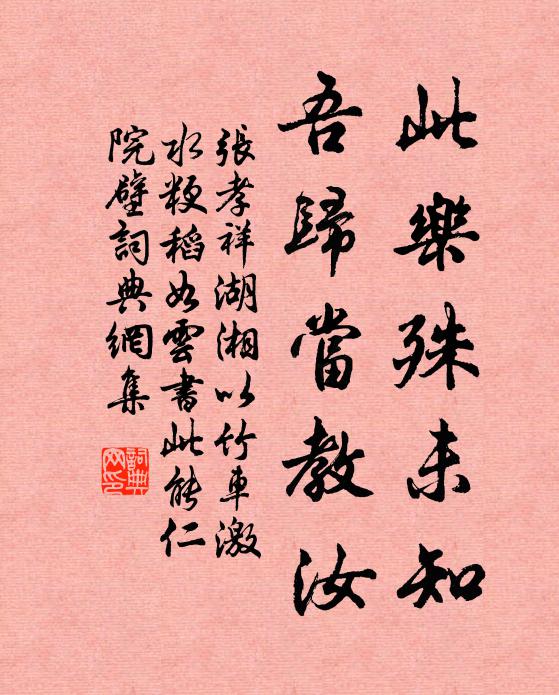 此樂殊未知
吾歸當教汝
張孝祥湖湘以竹車激
水粳稻如雲書此能仁
院壁詞典網集
詞典
网印